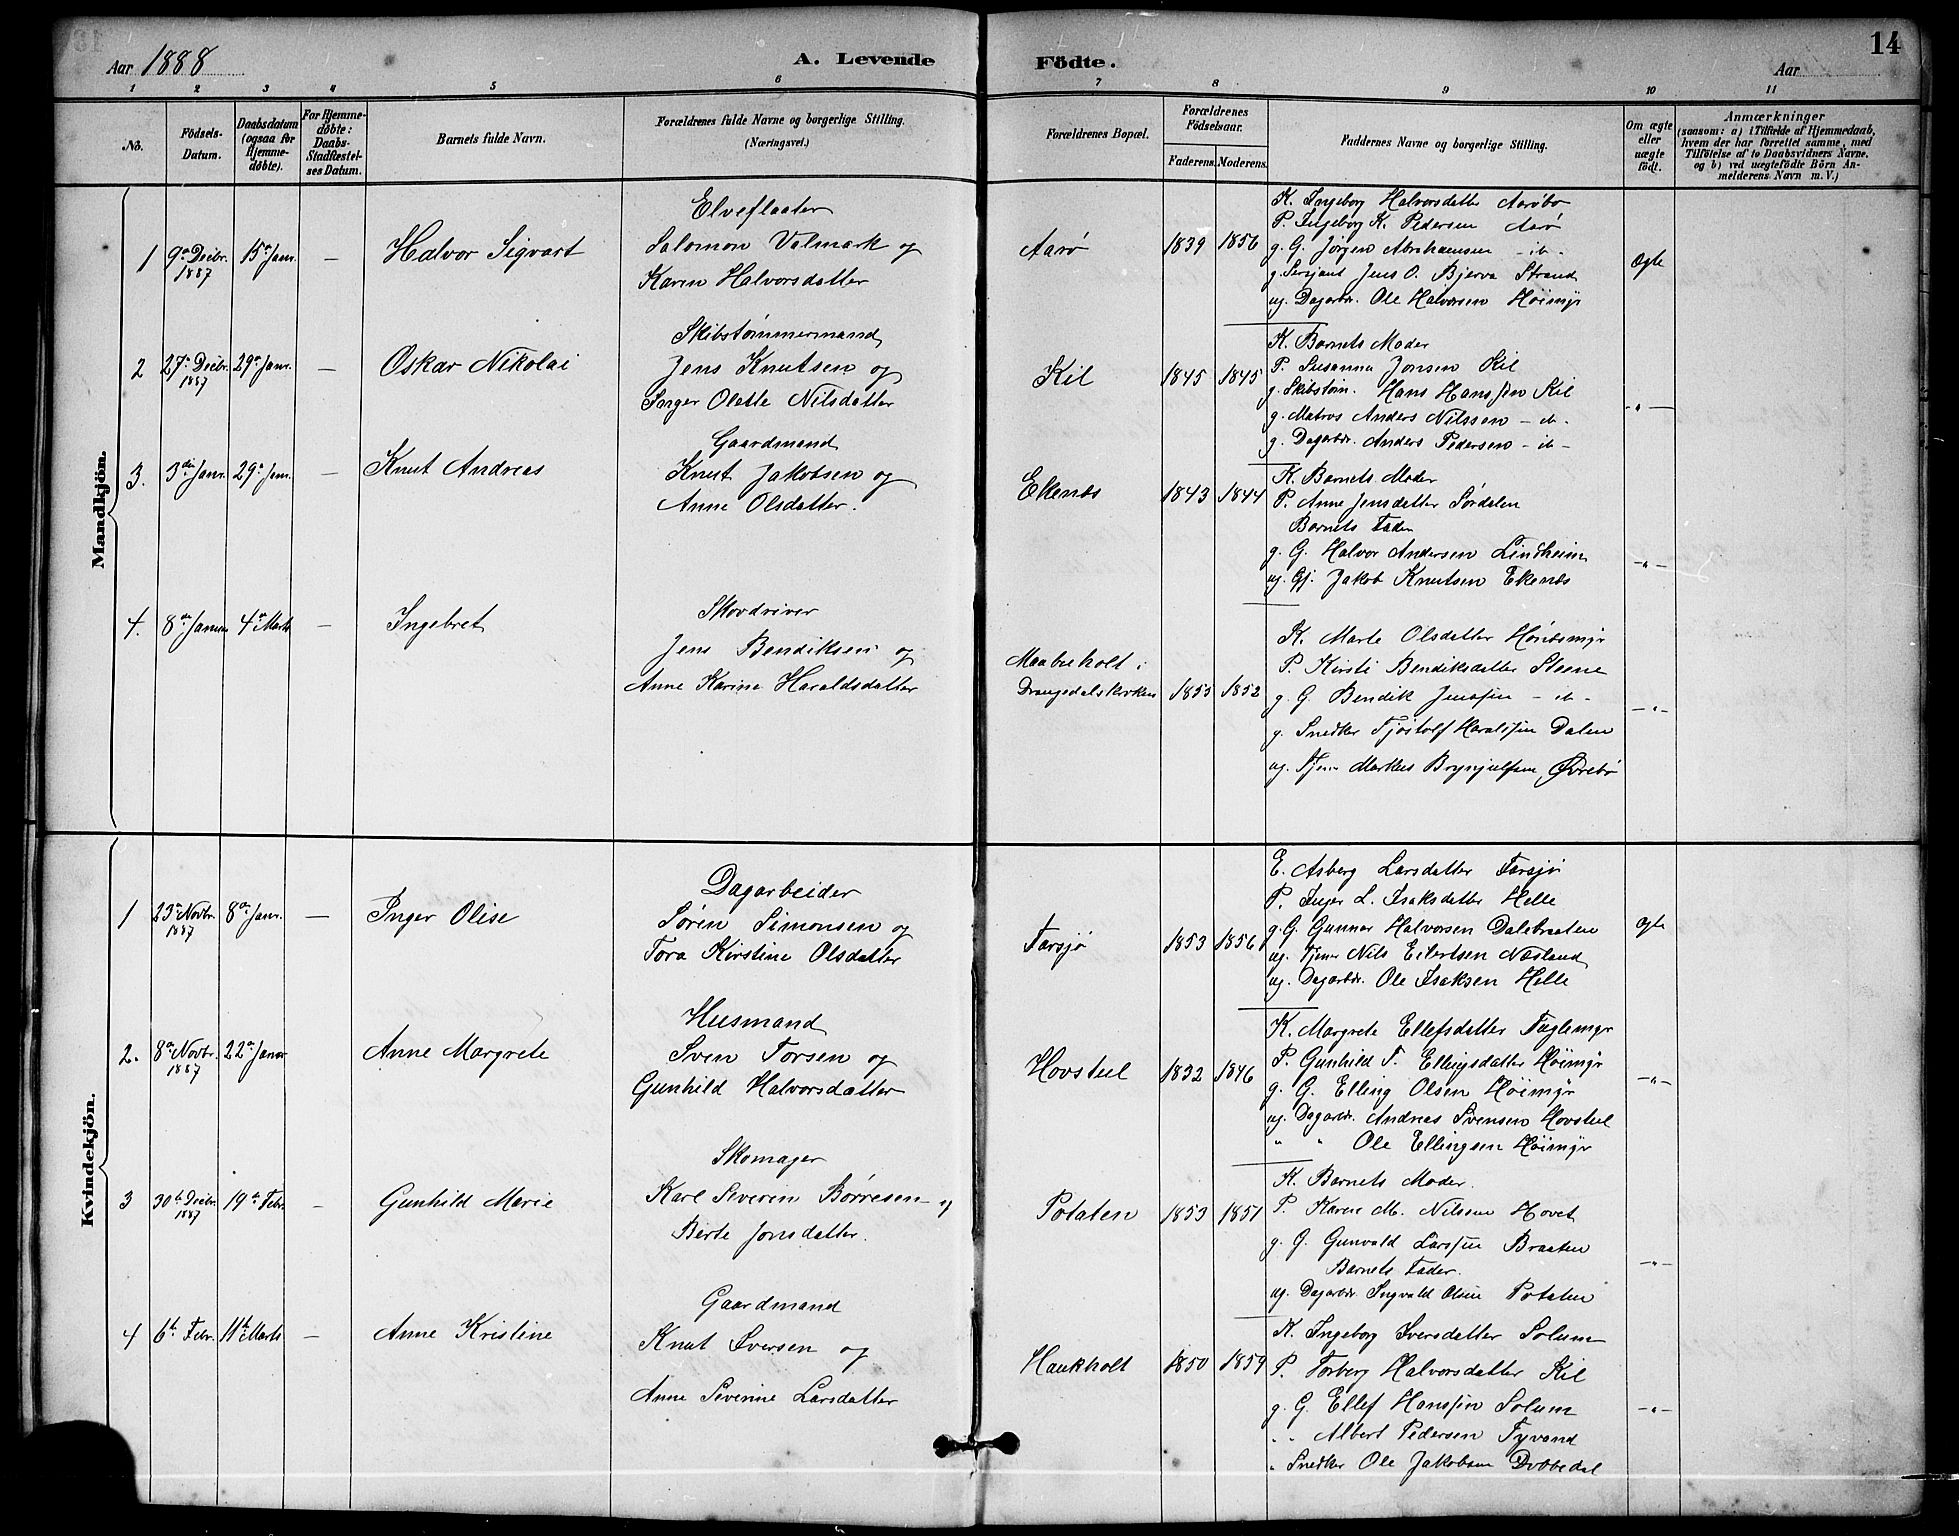 14
Aar 1888
A. Levende Födte.
Aar
1 2 3 4 5 6 7 8 9 10 11
No.
Födsels-Datum.
Daabsdatum (ogsaa for Hjemme-döbte).
For Hjemme-döbte: Daabs-Stadfæstel-ses Datum.
Barnets fulde Navn.
Forældrenes fulde Navne og borgerlige Stilling.
(Næringsvei.)
Forældrenes Bopæl.
Forældrenes Födselsaar.
Faderens. Moderens.
Faddernes Navne og borgerlige Stilling.
Om ægte eller uægte födt.
Anmærkninger
(saasom: a) i Tilfælde af Hjemmedaab, hvem der har forrettet samme, med Tilföielse af to Daabsvidners Navne, og b) ved uægtefödte Börn An-melderens Navn m. V.)
Mandkjön.
1 9de Decbr. 1887 15de Janr. — Halvor Sigvart
Elveflaater
Salomon Valmark og
Karen Halvorsdatter
Aarø 1839 1856
K. Ingeborg Halvorsdatter Aarøbø
P. Ingeborg K. Pedersen Aarø
g. G. Jørgen Abrahamsen - ib -
g. Serjant Jens O. Bjerva Strand
ug. Dagarbr. Ole Halvorsen Høimyr
Ægte
2 27de Decbr. 1887 29de Janr. — Oskar Nikolai
Skibstømmermand
Jens Knutsen og
Inger Olette Nilsdatter
Kil 1845 1845
K. Barnets Moder
P. Susanna Jensen Kil
g. Skibstøm. Hans Hanssen Kil
g. Matros Anders Nilssen - ib -
g. Dagarbr. Anders Pedersen - ib -
- " -
3. 3die Janr. 29de Janr. — Knut Andreas
Gaardmand
Knut Jakobsen og
Anne Olsdatter.
Ekenæs 1843 1844
K. Barnets Moder
P. Anne Jensdatter Sørdalen
Barnets Fader
g. G. Halvor Andersen Lindheim
ug. Gj. Jakob Knutsen Ekenæs
- " -
4. 8de Januar 4de Marts — Ingebret
Skovdriver
Jens Bendiksen og
Anne Karine Haraldsdatter
i
1855 1852
K. Marte Olsdatter Hønæsmyr
P. Kirsti Bendiksdatter Steene
g. G. Bendik Jenssen - ib -
g. Snedker Tjøstolf Haraldssen Dalen
ug. Tjener Markus Brynjulfsen Øvrebø
- " -
Kvindekjön.
1 23de Novbr. 1887 8de Janr. — Inger Olise
Dagarbeider
Søren Simonsen og
Tora Kirstine Olsdatter
Farsjø 1853 1856
E. Asberg Larsdatter Farsjø
P. Inger L. Isaksdatter Helle
g. G. Gunnar Halvorsen Dalsbraaten
ug. Tjener Nils Eilertsen Næsland
ug. Dagarbr. Ole Isaksen Helle
Ægte
2. 8de Novbr. 1887 22de Janr Anne Margrete
Husmand
Sven Torsen og
Gunhild Halvorsdatter
Hovstul 1832 1846
K. Margrete Ellefsdatter Fuglemyr
P. Gunhild T. Ellingsdatter Høimyr
g. G. Elling Olsen Høimyr
ug. Dagarbr. Andreas Svensen Hovstul
" " Ole Ellingsen Høimyr
- " -
3 30te Decbr. 1887 19de Febr. - Gunhild Marie
Skomager
Karl Severin Børresen og
Berte Jonsdatter.
Potaten 1853 1851
K. Barnets Moder.
P. Karen M. Nilssen Hovet
g. G. Gunvald Larssen Braaten
Barnets Fader.
ug. Dagarbr. Ingvald Olsen Potaten
- " -
4 6te Febr. 11te Marts — Anne Kristine
Gaardmand
Knut Iversen og
Anne Severine Larsdatter
Haukholt 1850 1859
K. Ingeborg Iversdatter Solum
P. Torberg Halvorsdatter Kil
g. G. Ellef Hanssen Solum
" " Albert Pedersen Tyvand
" Snedker Ole Jakobsen Dobbedal
- " -